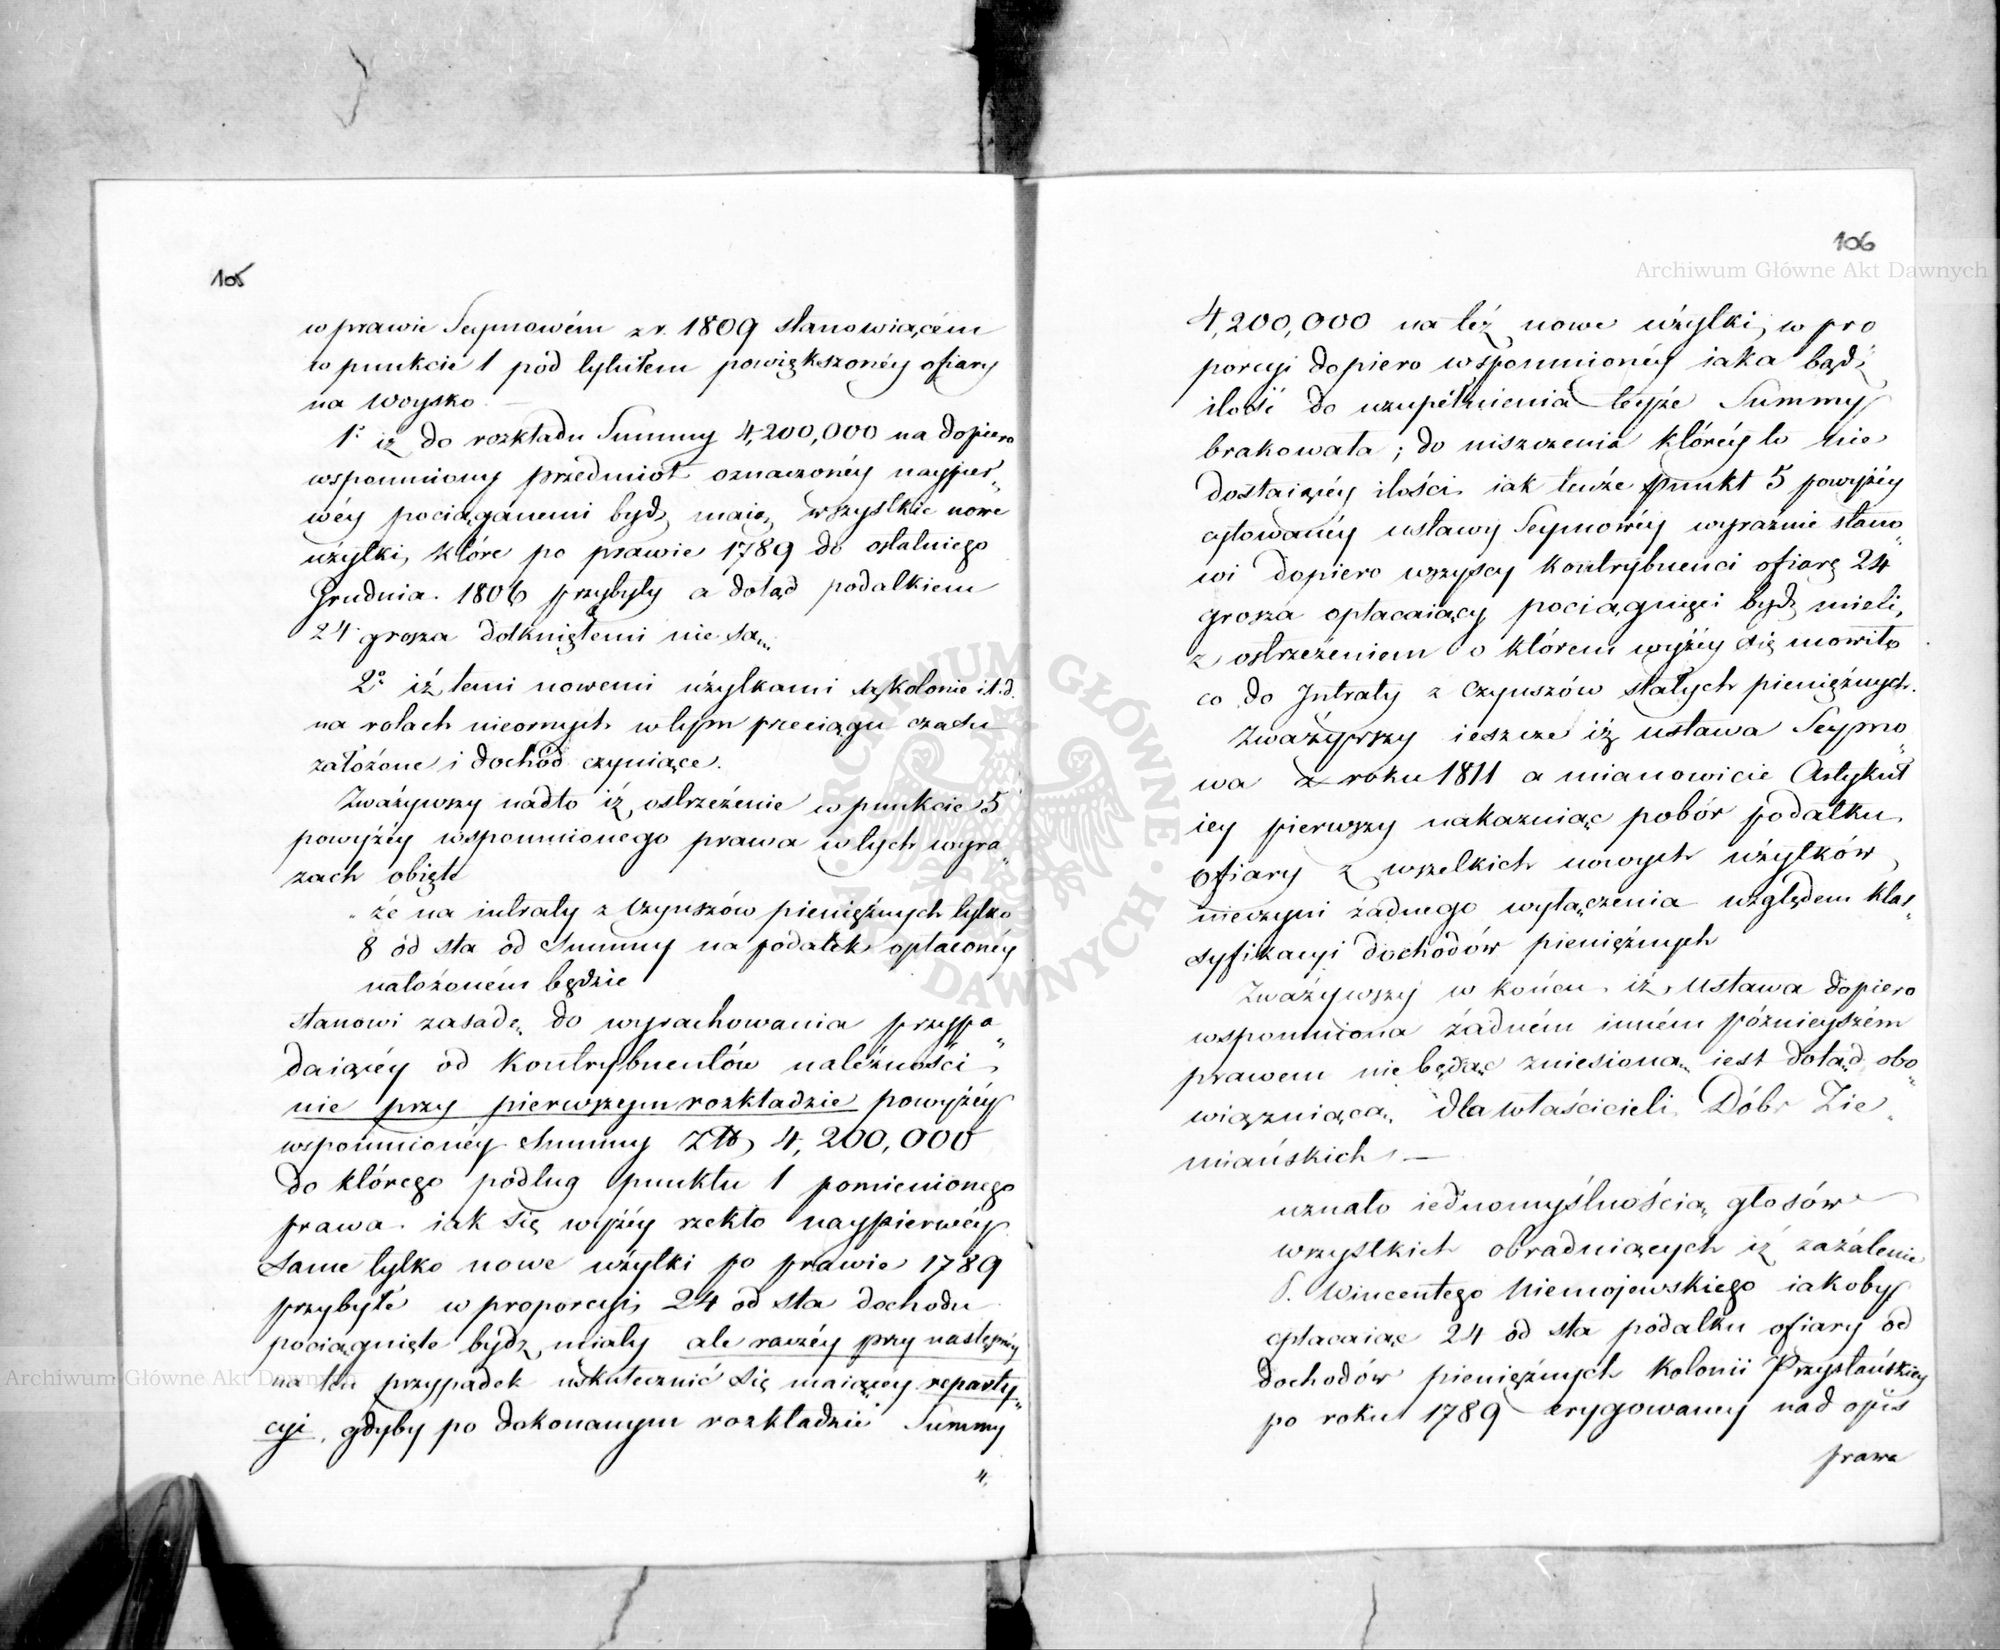 105
w prawie Seymowém z r. 1809 stanowiącém
w punkcie 1 pod tytułem powiększonéy ofiary
na Woysko. —
1º iż do rozkładu Summy 4,200,000 na dopiero
wspomniony przedmiot oznaczonéy naypier„
wéy pociąganemi bydź maią, wszystkie nowe
użytki, które po prawie 1789 do ostatniego
Grudnia 1806 przybyły a dotąd podatkiem
24 grosza dotkniętemi nie są.
2º iż temi nowemi użytkami są kolonie i t. d.
na rolach nieornych w tym przeciągu czasu
założone i dochód czyniące.
Zważywszy nadto iż ostrzeżenie w punkcie 5
powyżéy wspomnionego prawa w tych wyra„
zach obięte
„ że na intraty z Czynszów pieniężnych tylko
8 od sta od Summy na podatek opłaconéy
nałożoném będzie
stanowi zasadę do wyrachowania przypa„
daiącéy od Kontrybuentów należności
nie przy pierwszym rozkładzie powyżéy
wspomnionéy Summy Złł 4,200,000
do którego podług punktu 1 pomienionego
prawa iak się wyżéy rzekło naypierwéy
same tylko nowe użytki po prawie 1789
przybyłé w proporcyi 24 od sta dochodu
pociągnięte bydź miały ale raczéy przy następnéy
na ten przypadek uskutecznić się maiącéy reparty„
cyi, gdyby po dokonanym rozkładzie Summy
4,
106
4,200,000 na też nowe użytki, w pro
porcyi dopiero wspomnionéy iaka bądź
ilość do uzupełnienia teyże Summy
brakowała; do niszczenia któréy to nie
dostaiącéy ilości iak tenże punkt 5 powyżéy
cytowanéy ustawy Seymowéy wyraźnie stano„
wi dopiero wszyscy Kontrybuenci ofiarę 24
grosza opłacaiący pociągnięci bydź mieli,
z ostrzeżeniem o którem wyżéy się mówiło
co do Intraty z Czynszów stałych pieniężnych.
Zważywszy ieszcze iż ustawa Seymo„
wa z roku 1811 a mianowicie Artykuł
iey pierwszy nakazuiąc pobór podatku
ofiary z wszelkich nowych użytków
nieczyni żadnego wyłączenia względem klas„
syfikacyi dochodów pieniężnych
Zważywszy w końcu iż Ustawa dopiero
wspomniona żadném inném późnieyszém
prawem nie będąc zniesioną iest dotąd obo„
wiązuiącą dla właścicieli Dóbr Zie„
miańskich. —
uznało iednomyślnością głosów
wszystkich obraduiących iż zażalenie
P. Wincentego Niemojewskiego iakoby
opłacaiąc 24 od sta podatku ofiary od
dochodów pieniężnych Kolonii Przystańskiey
po roku 1789 erygowaney nad opis
prawa
Archiwum Główne Akt Dawnych
Archiwum Główne Akt Dawnych
ARCHIWUM GŁÓWNE AKT DAWNYCH